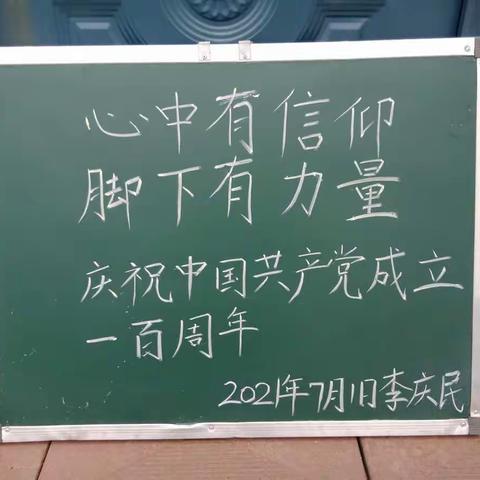 心中有信仰
脚下有力量
庆祝中国共产党成立
一百周年
2021年7月1日李庆民